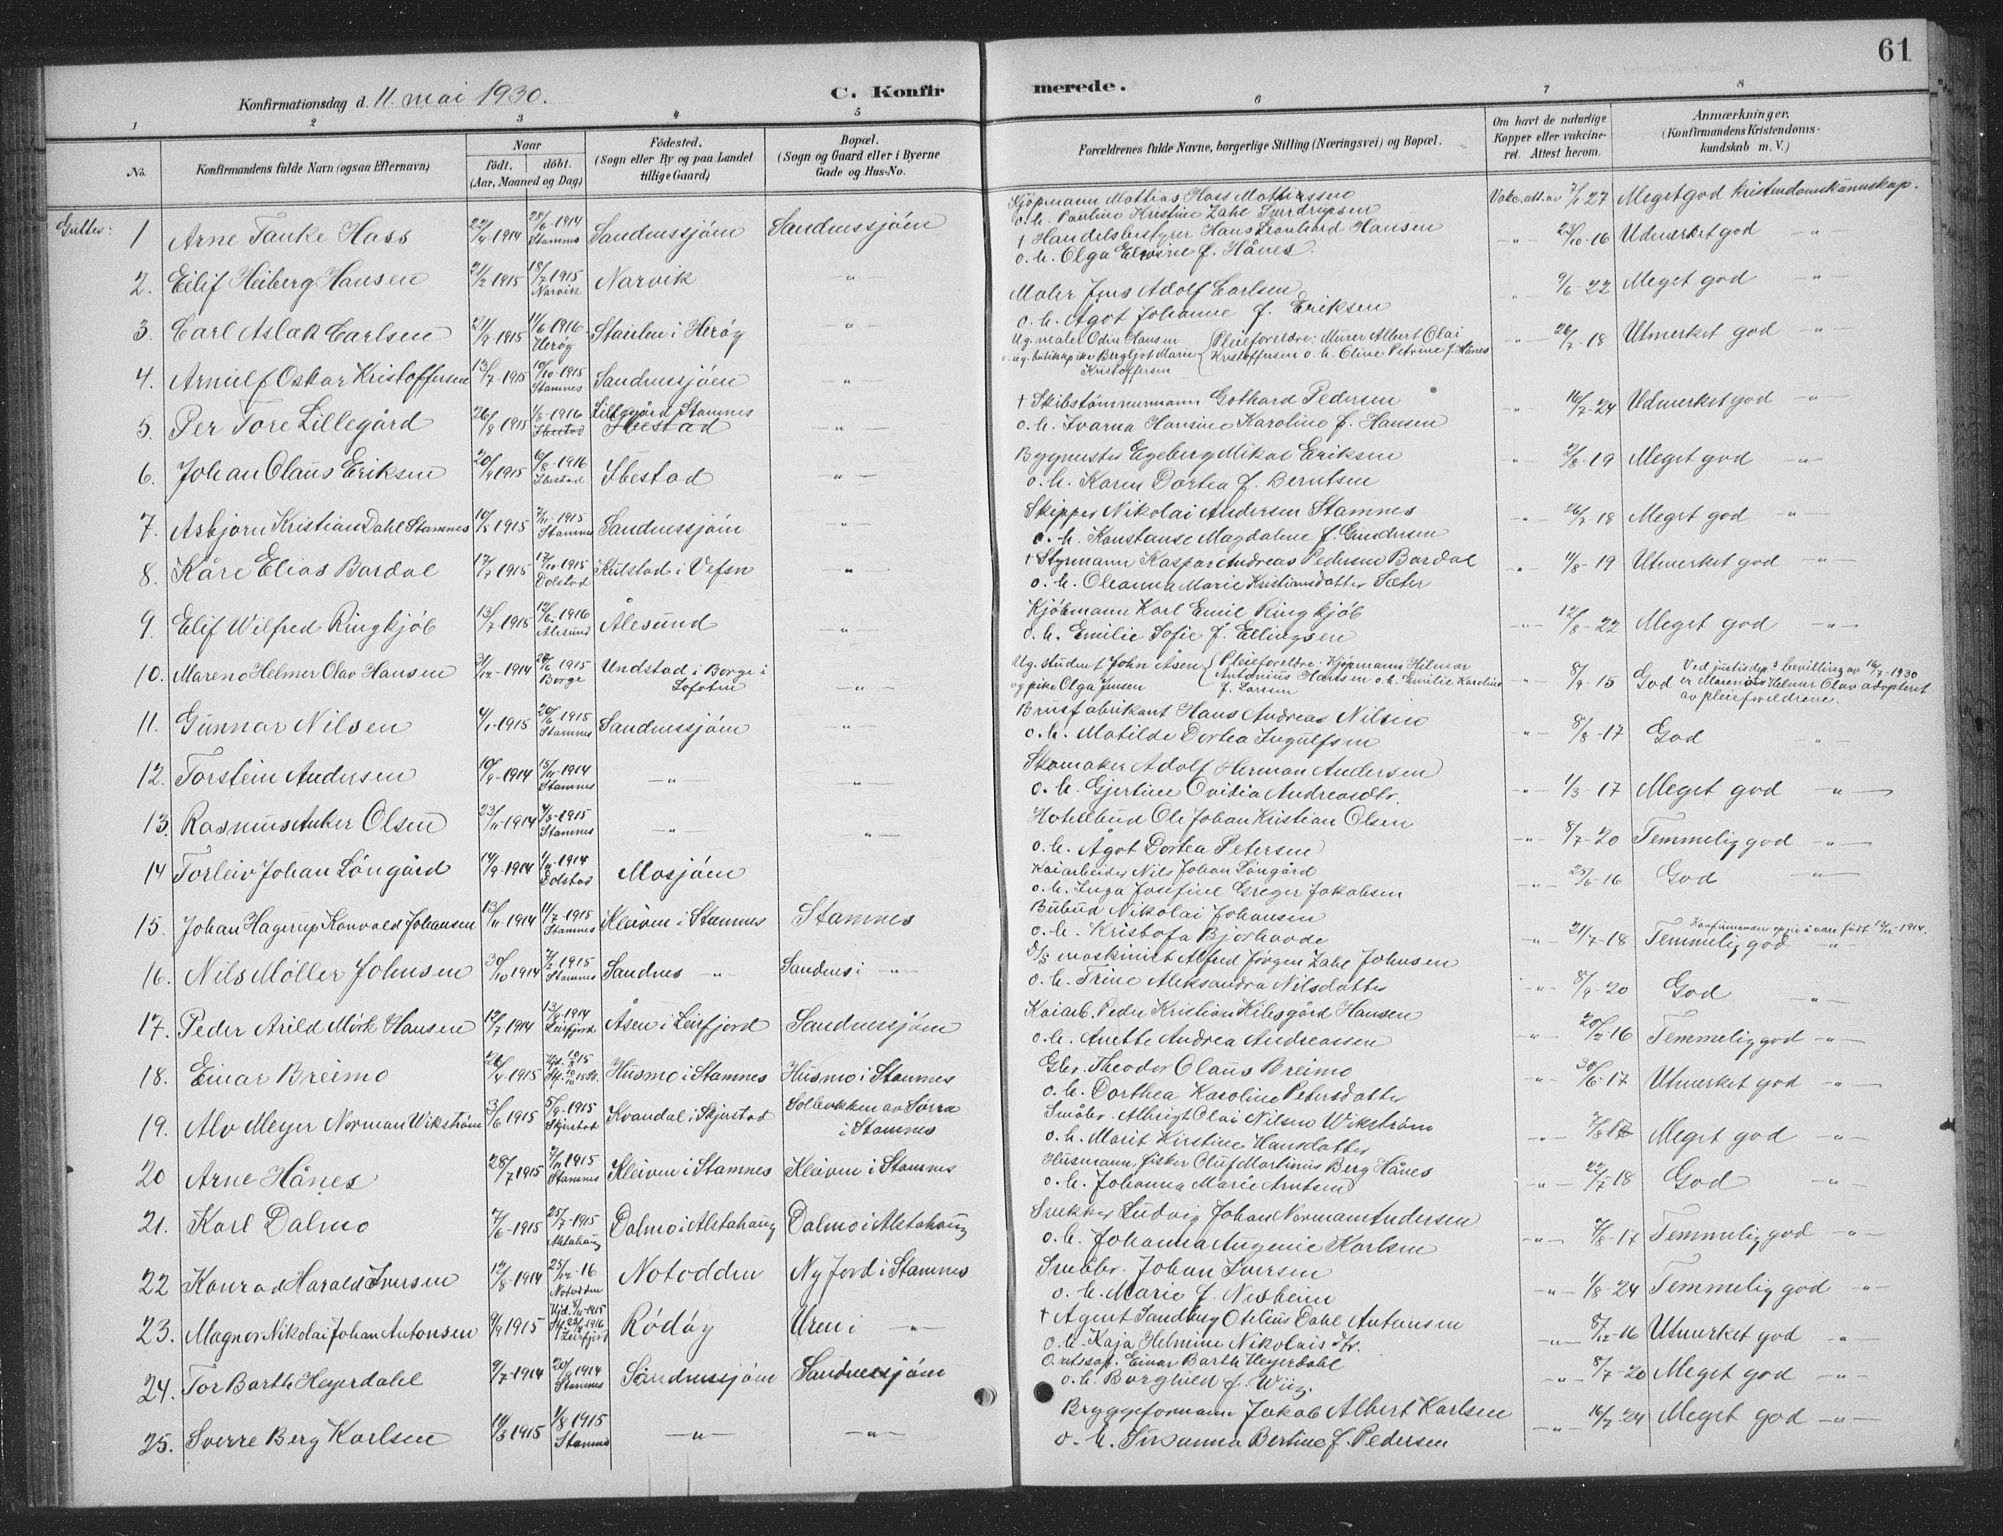 61
Konfirmationsdag d. 11. mai 1930.
C. Konfirmerede.
1 2 3 4 5 6 7 8
No.
Konfirmandens fulde Navn (ogsaa Efternavn)
Naar
födt. döbt.
(Aar, Maaned og Dag)
Födested.
(Sogn eller By og paa Landet
tillige Gaard)
Bopæl.
(Sogn og Gaard eller i Byerne
Gade og Hus-No.
Forældrenes fulde Navne, borgerlige Stilling (Næringsvei) og Bopæl.
Om havt de naturlige
Kopper eller vakcine-
ret. Attest herom.
Anmærkninger.
(Konfirmandens Kristendoms-
kundskab m. V.)
Gutter:
1 Arne Tanke Hass 22/4 1914 28/6-1914 Stamnes Sandnessjøen Sandnessjøen
Kjøpmann Mathias Hass Mathiassen
o. h. Pauline Kristine Zahl Sverdrupsen
Vakc.att. av 7/1 27 Meget god kristendomskunnskap.
2. Eilif Heiberg Hansen 21/2 1915 18/7-1915 Narvik Narvik -"-
† Handelsbestyrer Hans Leonhard Hansen
o. h. Olga Elvine f. Hånes.
-"- 23/10-16 Udmerket god -"-
3. Carl Aslak Carlsen 21/9-1915 11/6-1916 Herøy Staulen i Herøy -"-
Maler Jens Adolf Carlsen
o. h. Ågot Johanne f. Eriksen
-"- 9/6-22 Meget god -"-
4. Arnulf Oskar Kristoffersen 13/7-1915 10/10-1915 Stamnes Sandnessjøen -"-
Ug. malel Odin Hansen
og butikkpike Bergljot Marie
Kristoffersen
Pleieforeldre: Murer Albert Olai
Kristoffersen o. h. Oline Petrine f. Hånes
-"- 26/7-18 Utmerket god -"-
5. Per Tore Lillegård 26/8 1915 1/8-1916 Ibestad Lillegård Stamnes Ibestad -"-
† Skibstømmermann Gothard Pedersen
o. h. Ivarna Hansine Karoline f. Hansen
-"- 16/7-24 Udmerket god -"-
6. Johan Olaus Eriksen 20/9 1915 6/8-1916 Ibestad Ibestad -"-
Byggmester Egeberg Mikal Eriksen
o. h. Karen Dortea f. Berntsen
" 3/8-19 Meget god -"-
7. Asbjørn Kristian Dahl Stamnes 10/5 1915 7/11-1915 Stamnes Sandnessjøen -"-
Skipper Nikolai Andersen Stamnes
o. h. Konstanse Magdalene f. Gundersen
-"- 26/7 18 Meget god -"-
8. Kåre Elias Bardal 17/7 1915 17/10-1915 Dolstad Kulstad i Vefsn -"-
† Styrmann Kaspar Andreas Pedersen Bardal
o. h. Oleanna Marie Kristiansdatter Sæter
-"- 11/8-19 Utmerket god -"-
9. Elif Wilfred Ringkjøb 13/7 1915 12/6-1916 Ålesund Ålesund -"-
Kjøbmann Karl Emil Ringkjøb
o. h. Emilie Sofie f. Ellingsen
-"- 12/8-22 Meget god -"-
10. Mareno Helmer Olav Hansen 31/12-1914 24/6 1915 Borge Undstad i Borge i Lofoten -"-
Ug. student John Åsen
og pike Olga Jensen
Pleieforeldre: Kjøpmann Hilmar
Antonius Hansen o. h. Emilie Karoline
f. Larsen
-"- 8/9-15 God
Ved justisdep's bevilling av 16/7-1930
er Marenius Helmer Olav adopteret
av pleieforeldrene.
11. Gunnar Nilsen 4/1-1915 20/6-1915 Stamnes Sandnessjøen -"-
Brusfabrikant Hans Andreas Nilsen
o. h. Matilde Dortea Ingulfsen
-"- 8/8-17 God "
12. Torstein Andersen 10/9 1914 15/11-1914 Stamnes -"- -"-
Skomaker Adolf Herman Andersen
o. h. Gjertine Ovidia Andreasdtr.
-"- 1/3-17 Meget god -"-
13. Rasmus Anker Olsen 23/11-1914 4/3-1915 Stamnes -"- -"-
Hotelbud Ole Johan Kristian Olsen
o. h. Ågot Dortea Petersen
-"- 8/7-20 Temmelig god -"-
14 Torleiv Johan Löngård 14/9-1914 1/11-1914 Dolstad Mosjøen
Kaiarbeider Nils Johan Löngård
o. h. Inga Josefine Greger Jakobsen
-"- 25/6-16 God -"-
15. Johan Hagerup Konvald Johansen 13/11-1914 11/7-1915 Stamnes Kleiven i Stamnes Stamnes
Bybud Nikolai Johansen
o. h. Kristofa Bjørhovde
-"- 21/7-18 Temmelig god -"-
16. Nils Møller Johnsen 30/10 1914 7/2-1915 Stamnes Sandnes -"- Sandnes i -"-
D/S maskinist Alfred Jørgen Zahl Johnsen
o. h. Trine Aleksandra Nilsdatter
-"- 8/9-20 God -"-
17. Peder Arild Mörk Hansen 12/7 1914 13/9-1914 Leirfjord Åsen i Leirfjord Sandnessjøen
Kaiarb. Peder Kristian Kibsgård Hansen
o. h. Anette Andrea Andreassen
-"- 20/12-16 Temmelig god -"-
18. Einar Breimo 26/4 1915 Husmo i Stamnes Husmo i Stamnes
Gbr. Theodor Olaus Breimo
o. h. Dorthea Karoline Petersdatter
-"- 30/6-17 Utmerket god -"-
19. Alv Meyer Norman Wikstrøm 3/6 1915 5/9-1915 Skjerstad Kvandal i Skjerstad Solbakken av Sørra i Stamnes
Småbr. Albrigt Olai Nilsen Wikstrøm
o. h. Marit Kirstine Hansdatter
-"- Meget god -"-
20 Arne Hånes 28/7 1915 7/11 1915 Stamnes Kleiven i Stamnes Kleiven i Stamnes
Husmann fisker Oluf Martinus Berg Hånes
o. h. Johanna Marie Arntsen
-"- 22/7-18 God -"-
21. Karl Dalmo 7/6-1915 25/7-1915 Alstahaug Dalmo i Alstahaug Dalmo i Alstahaug
Snekker Ludvig Johan Norman Andersen
o. h. Johanna Augenie Karlsen
-"- 9/8-17 Temmelig god -"-
22 Konrad Harald Iversen 12/8-1914 25/12-16 Notodden Notodden Ny Jord i Stamnes
Småbr. Johan Iversen
o. h. Marie f. Nesheim
-"- 1/8-24 Temmelig god -"-
23. Magnor Nikolai Johan Antonsen 9/9 1915 Leirfjord Rödöy Uren i -"-
† Agent Sandberg Otelius Dahl Antonsen
o. h. Kaja Helmine Nikolais dtr.
-"- 8/12-16 Utmerket god -"-
24. Tor Barth Heyerdahl 9/7-1914 20/9 1914 Stamnes Sandnessjøen Sandnessjøen
O.rettssag. Einar Barth Heyerdahl
o. h. Borghild f. Wiig.
-"- 8/7-20 Meget god -"-
25. Sverre Berg Karlsen 14/3 1915 1/8 1915 Stamnes -"- -"-
Bryggeformann Jakob Albert Karlsen
o. h. Susanna Bertine f. Pedersen
-"- 16/7-24 Meget god -"-